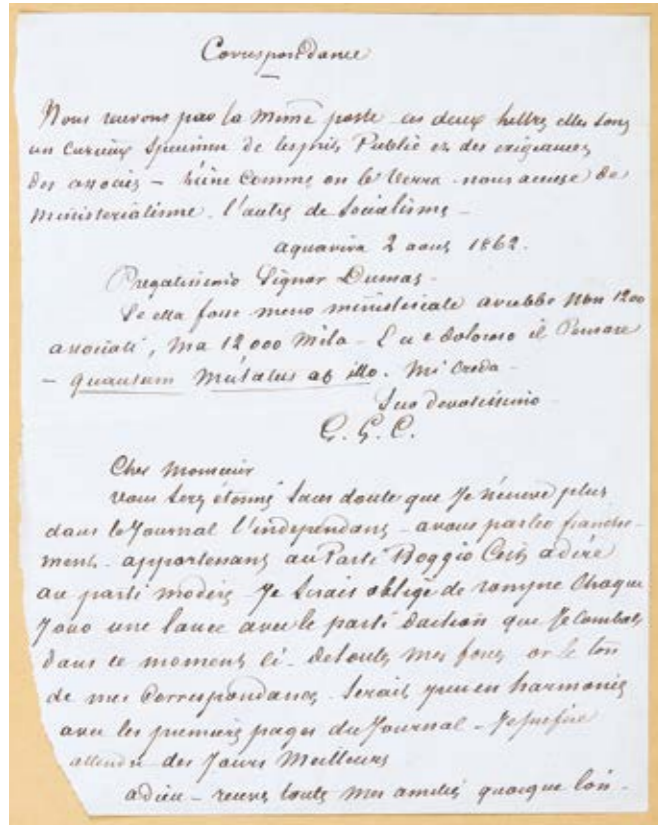 Correspondance
Nous recevons par la même poste ces deux lettres elles sont
un curieux specimen de l'esprit Public et des exigeances
des associés – L'une comme on le verra nous accuse de
ministerialisme. l'autre de Socialisme –
aquaviva 2 aout 1862.
Pregatissimo Signor Dumas –
Se ella fosse meno ministeriale avrebbe non 1200
associati, ma 12 000 mila – E a e doloroso il Pensare
– quantum mutatus ab illo. Mi Creda –
Suo devotissimo
G. G. C.
Cher Monsieur
vous serez étonné sans doute que Je n'écrive plus
dans le Journal l'independant – avant parlé franche-
ment – appartenant au Parti Boggio C'est adiré
au parti modéré – Je serais obligé de rompre Chaque
Jour une lance avec le parti daction que Je Combats
dans ce moment ci – de toutes mes forces or le ton
de mes Correspondances serait peu en harmonie
avec les premieres pages du Journal – Je prefere
attendre des Jours Meilleurs
adieu – recevez toutes mes amitiés quoique loin –